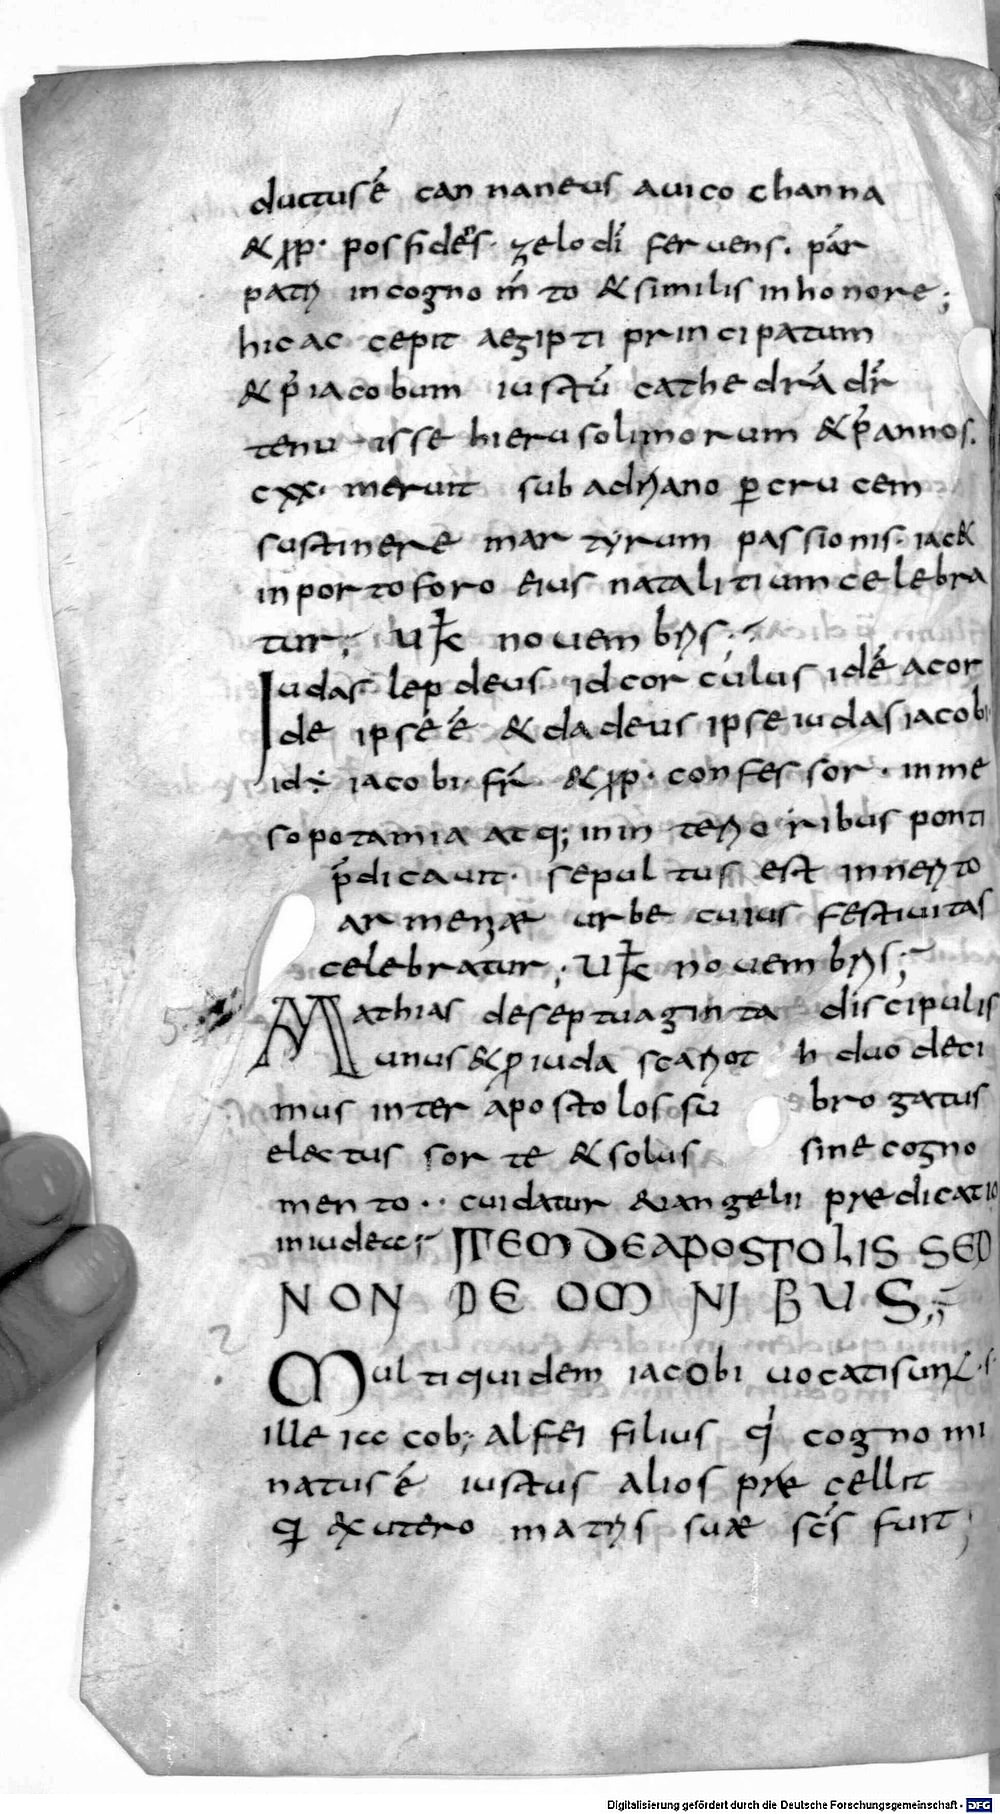 ductusé cannaneus auico channa
& pp· possidés· zelo dī feruens. pár
patri incognom̄to & similis inhonore;
hic accepit aegipti principatum
& p̄ iacobum iustū cathedrā dr̄
tenuisse hierusolimorum & p̄ annos.
cxx· meruit sub adriano p crucem
sustinere martyrum passionis· iac&
inportoforo eius natalitium celebra
tur; U k novembris;
Iudas lepdeus id corculus idé acor
de ipsé é & dadeus ipse iudas iacobi
id ÷ iacobi· fr̄ & pp· confessor· inme
sopotamia atq; inin terioribus ponti
p̄dicauit· sepultus est innerito
armeniæ urbe cuius festiuitas
celebratur; U k nouembris;
Mathias deseptuaginta discipulis
unus & p iuda scariot h duodeci
mus inter apostolos su brogatus
electus sorte & solus sine cogno
mento·· cuidatur euangelii prædicatio
iniudea; ITEM DE APOSTOLIS SED
NON DE OMNIBUS;
Multi quidem iacobi uocati sunt· s·
ille iacob; alfei filius q̇ cognomi
natus é iustus alios præcellit
q̇ exutero matris suæ sc̄s fuit;
5
2
Digitalisierung gefördert durch die Deutsche Forschungsgemeinschaft - DFG